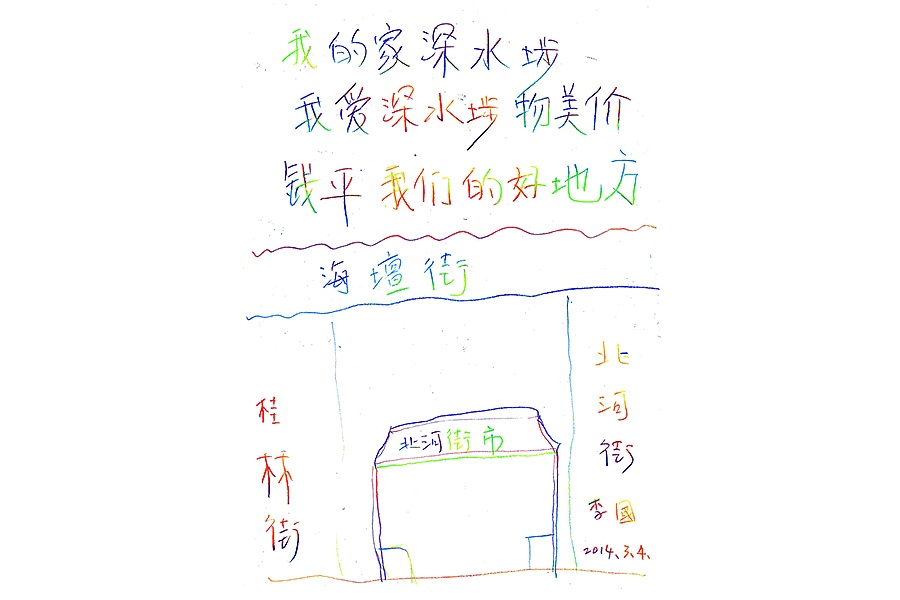 我的家深水埗
我爱深水埗物美价
钱平我们的好地方
海壇街
桂林街
北河街市
北河街
李國
2014.3.4.